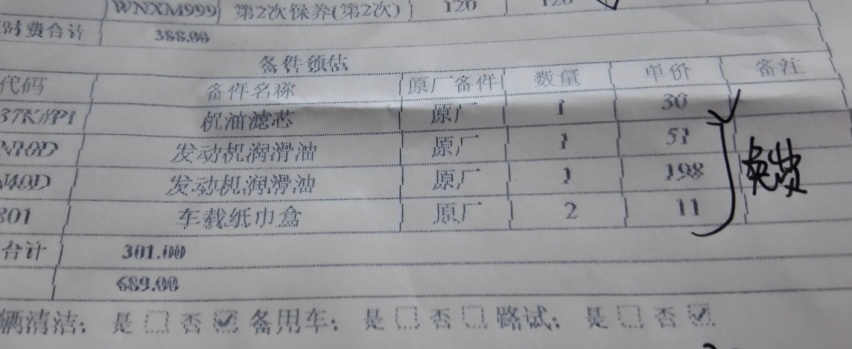 WNXM999 第2次保养(第2次) 120 120
时费合计 388.00
备件预估
代码 备件名称 原厂备件 数量 单价 备注
机油滤芯 原厂 1 30
发动机润滑油 原厂 1 51
发动机润滑油 原厂 1 198
免费
301 车载纸巾盒 原厂 2 11
合计 301.00
689.00
辆清洁: 是 否 备用车: 是 否 路试: 是 否